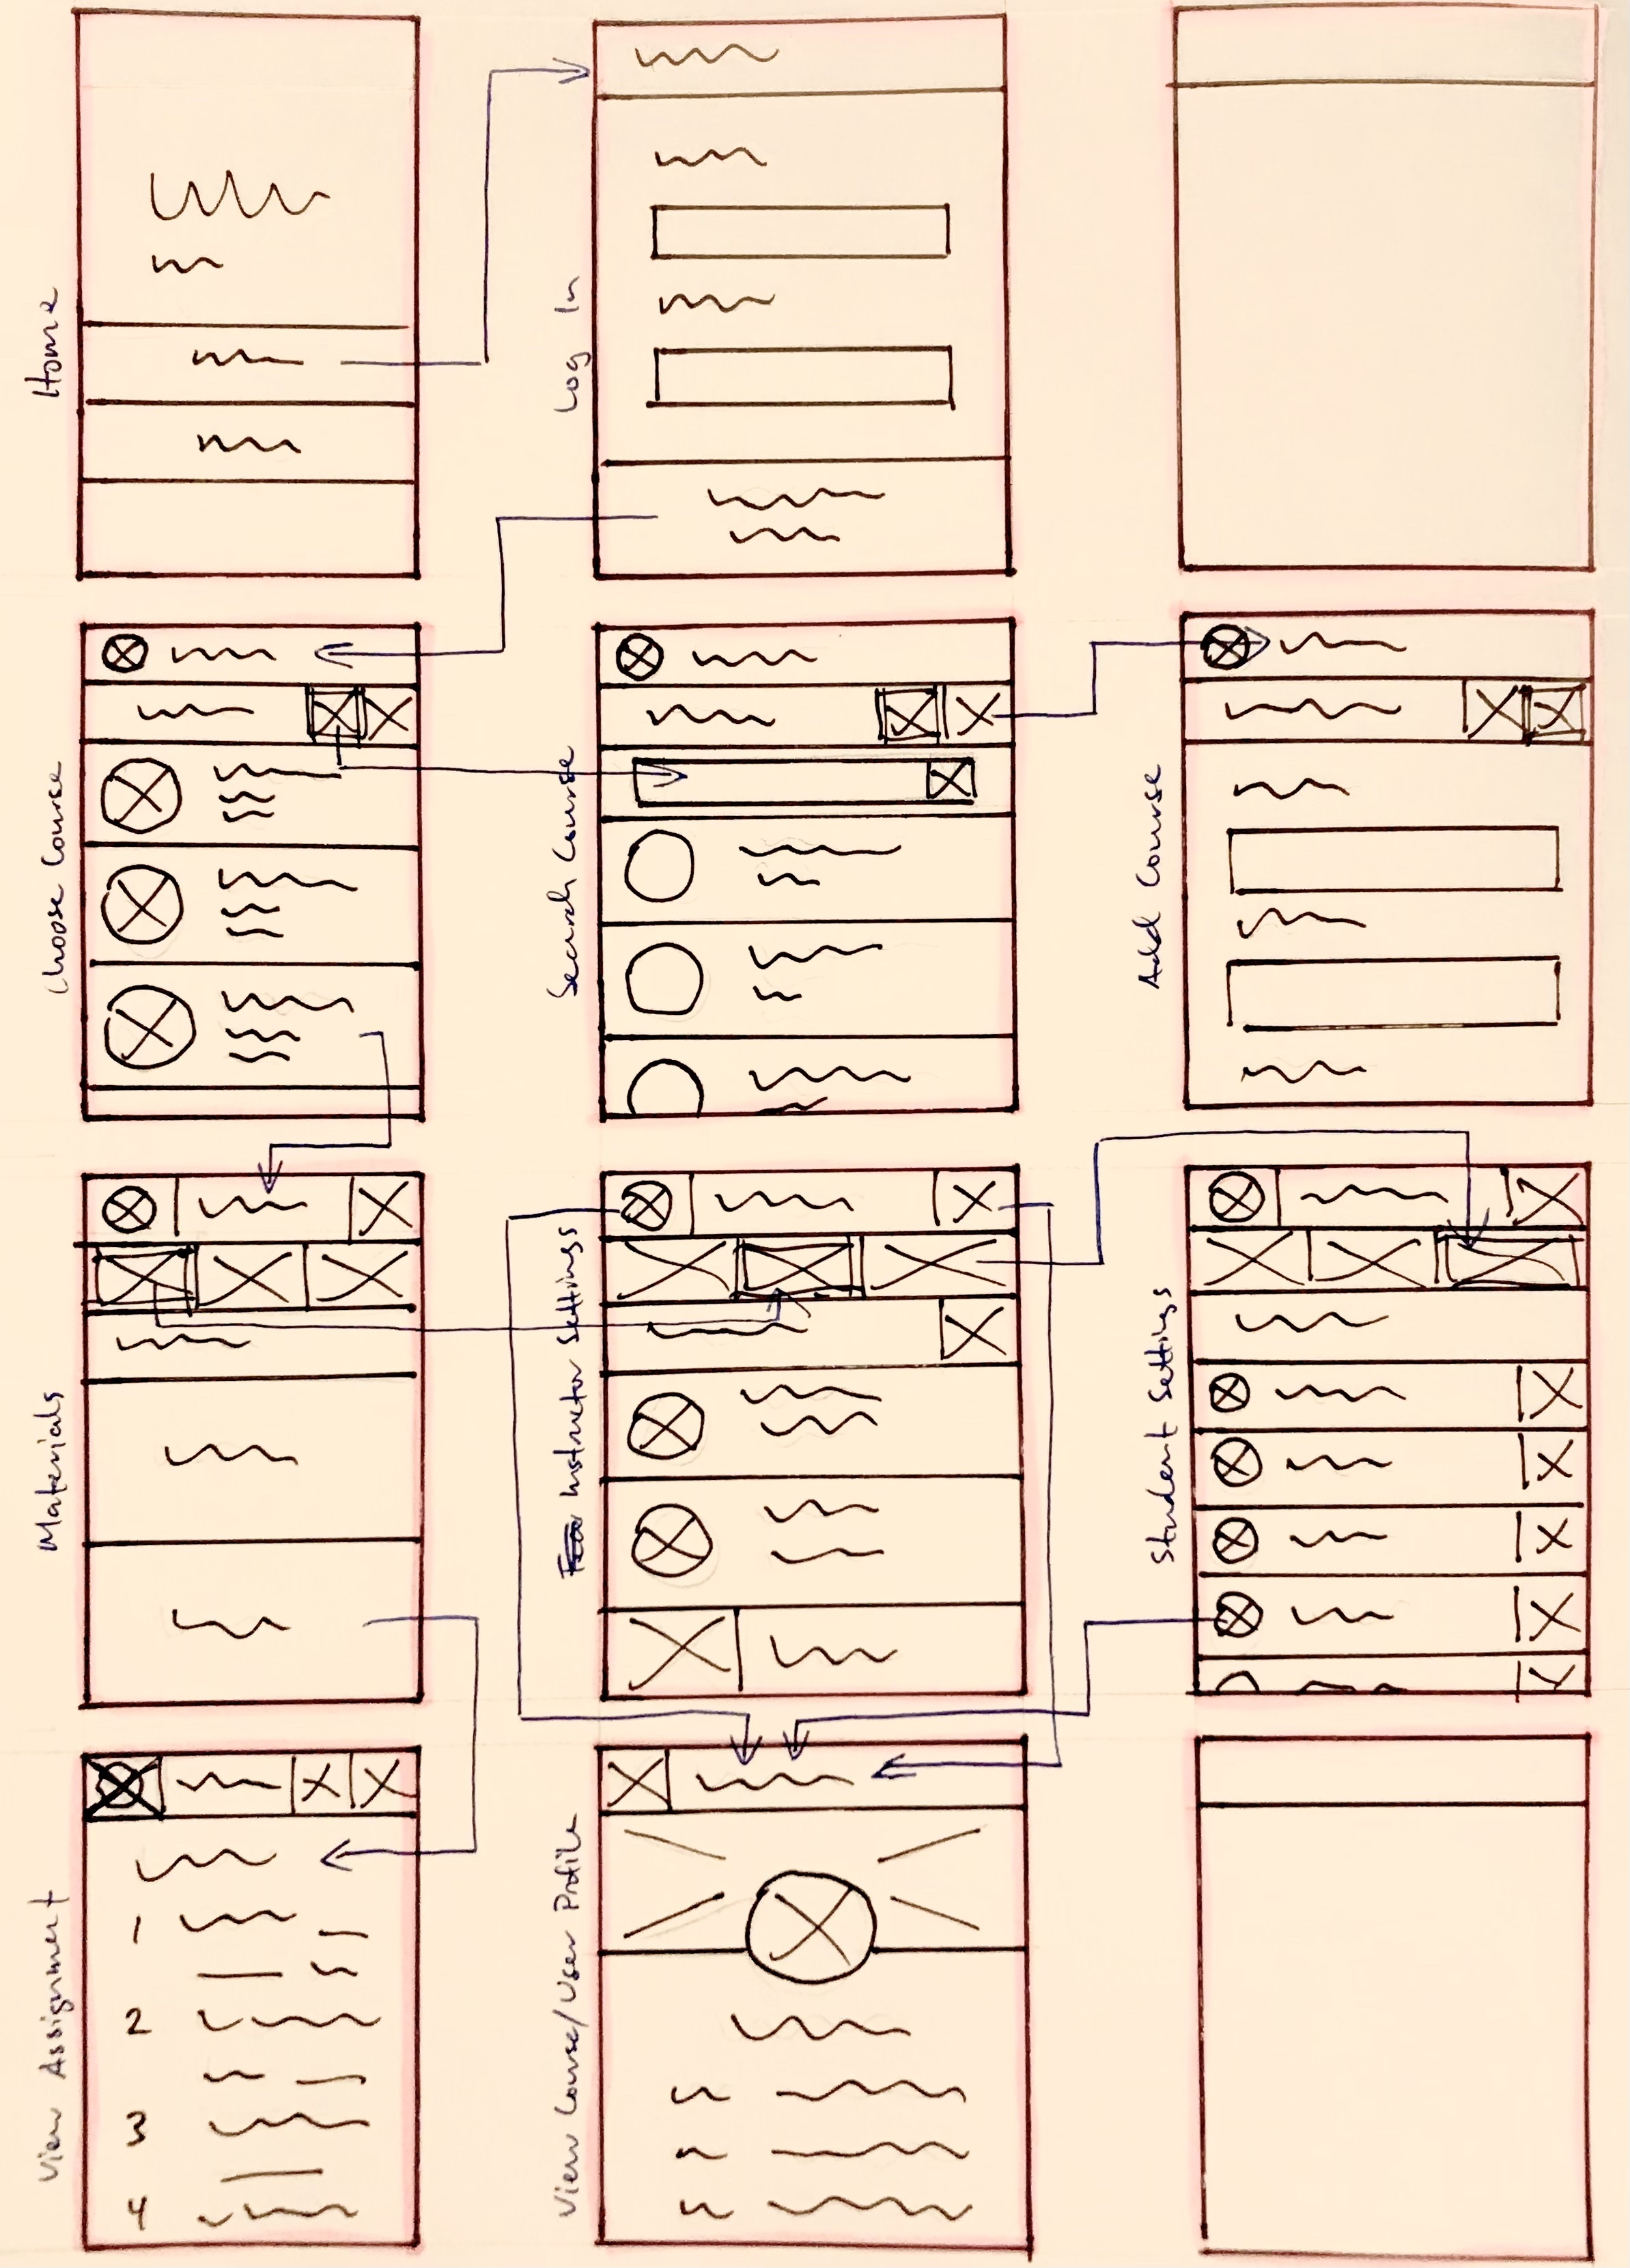 Home
Log In
Choose Course
Search Course
Add Course
Materials
Instructor Settings
Student Settings
View Assignment
1
2
3
4
View Course/User Profile